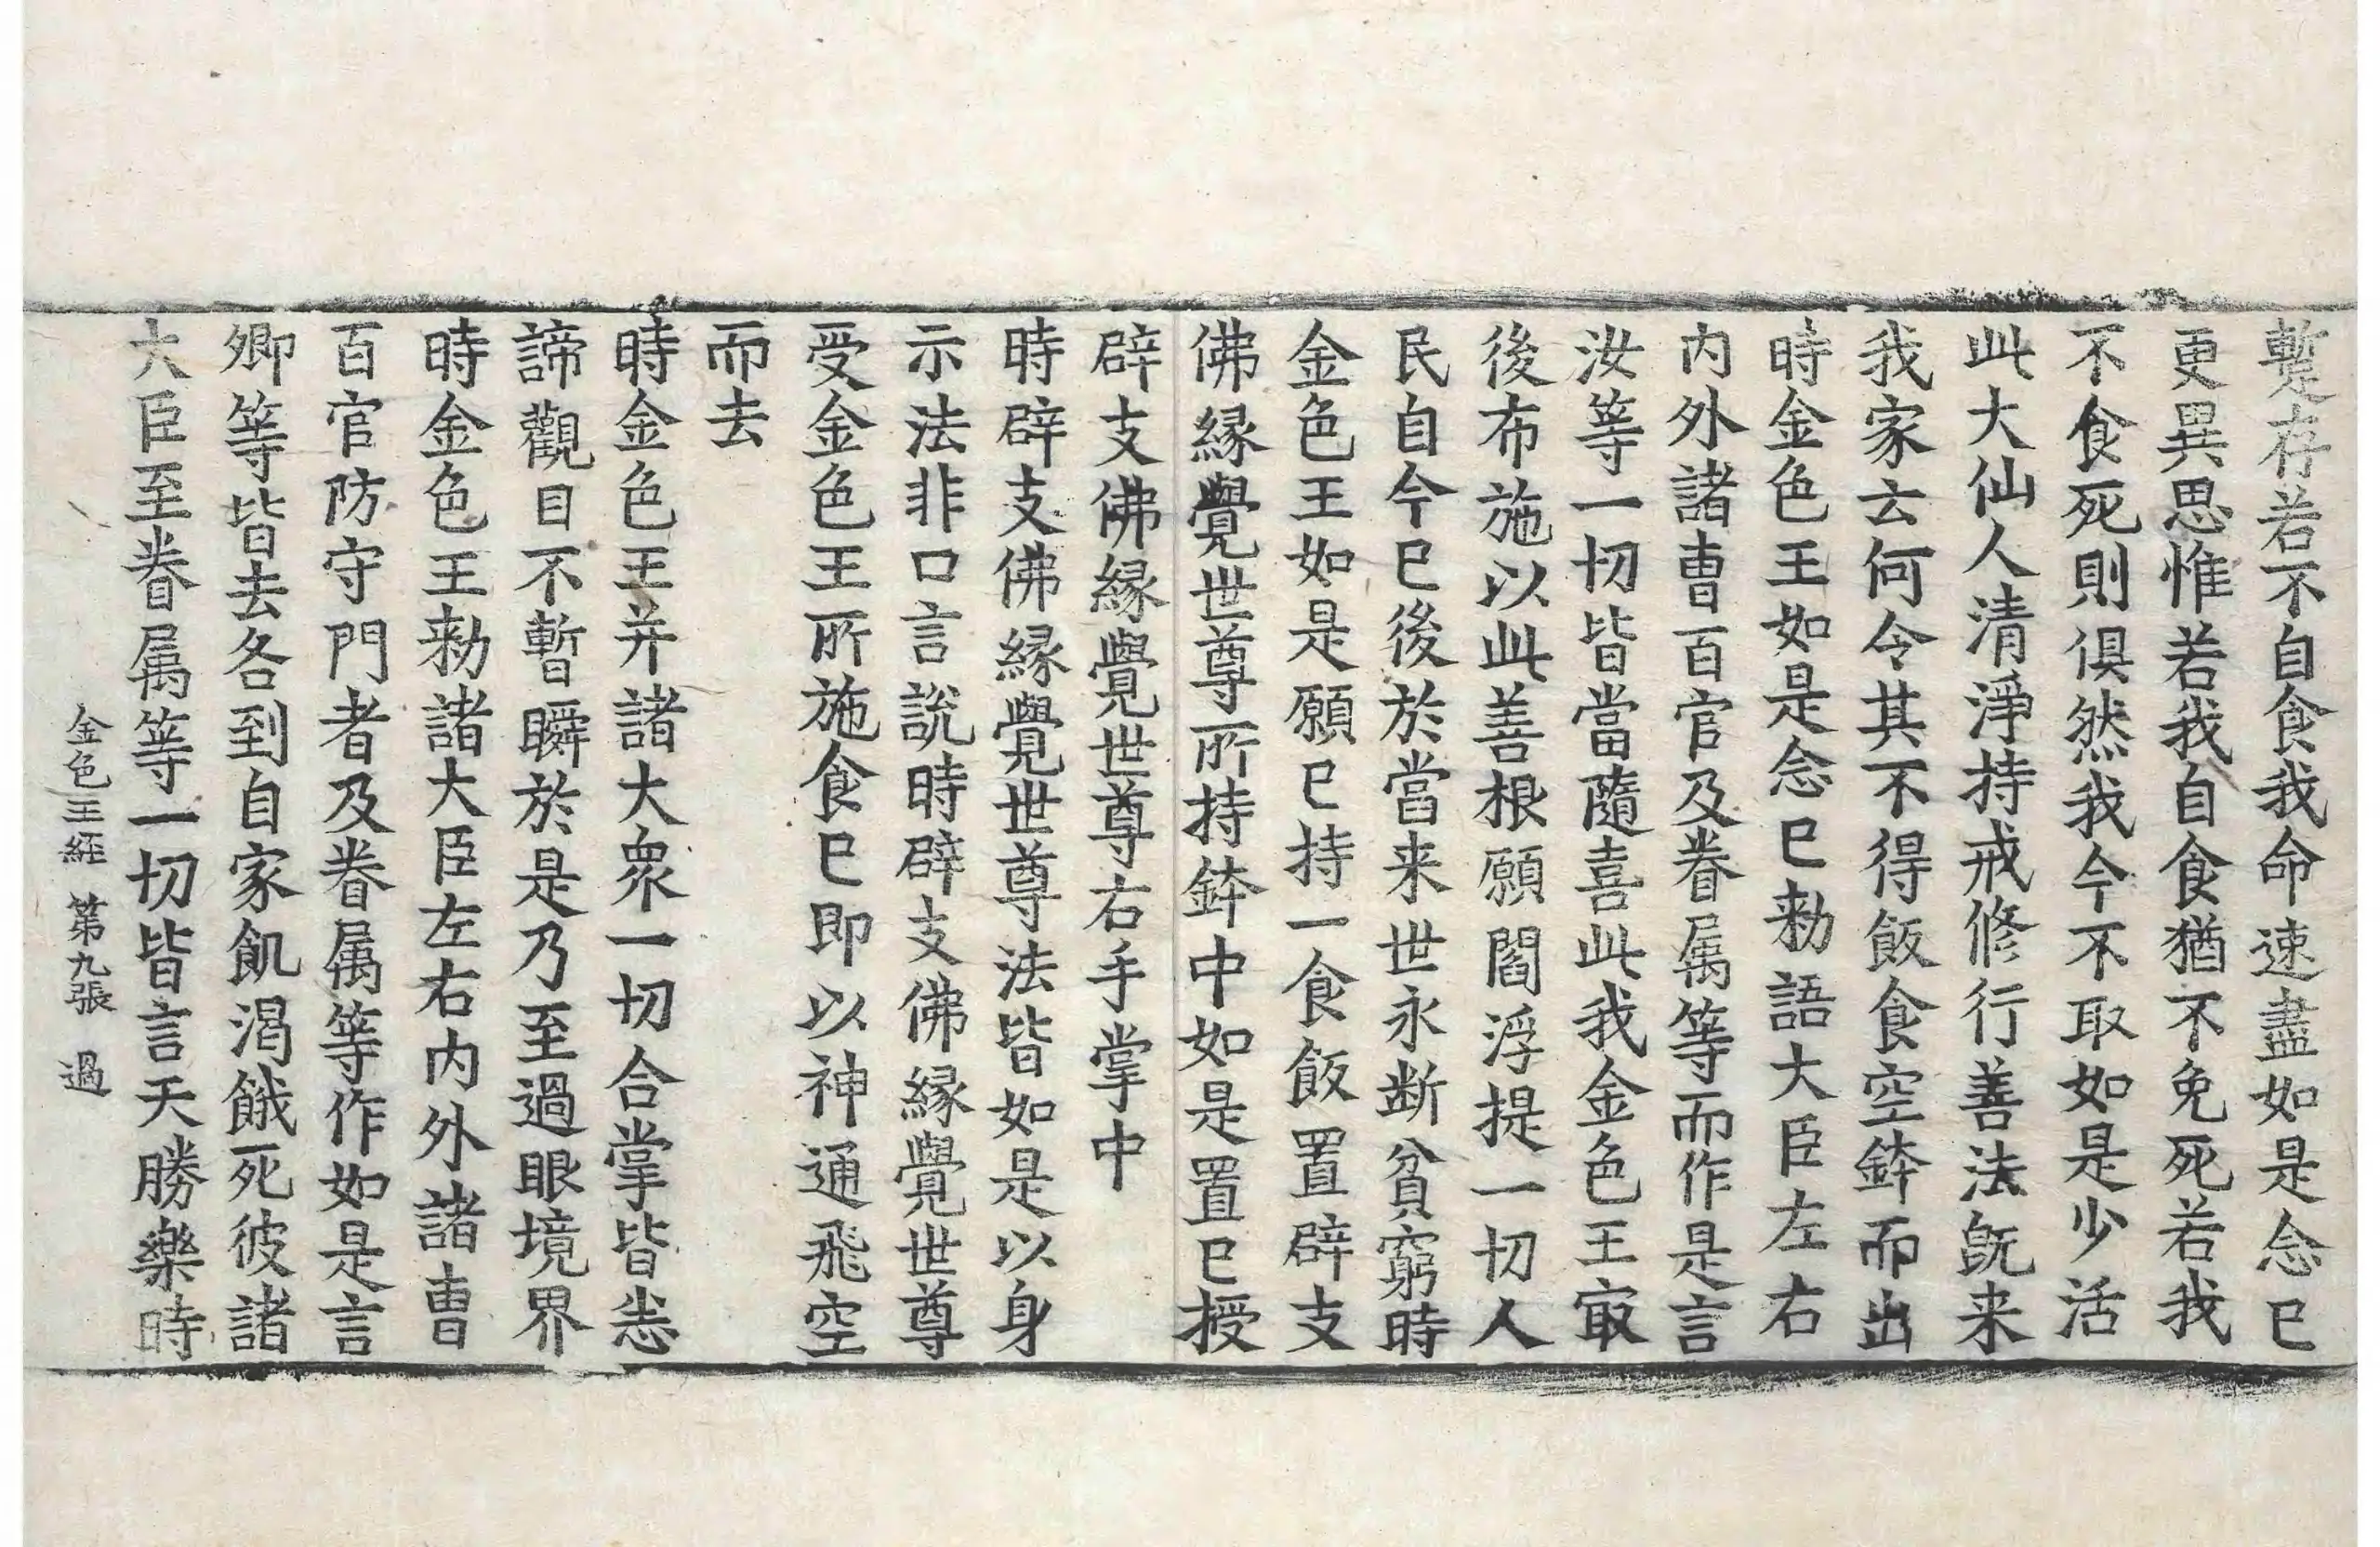 暫存若不自食我命速盡如是念已
更異思惟若我自食猶不免死若我
不食死則俱然我今不取如是少活
此大仙人清淨持戒修行善法旣来
我家云何令其不得飯食空鉢而出
時金色王如是念已勑語大臣左右
内外諸曺百官及眷属等而作是言
汝等一切皆當隨喜此我金色王㝡
後布施以此善根願閻浮提一切人
民自今已後於當来世永断貧窮時
金色王如是願已持一食飯置辟支
佛縁覺世尊所持鉢中如是置已授
辟支佛縁覺世尊右手掌中
時辟支佛縁覺世尊法皆如是以身
示法非口言說時辟支佛縁覺世尊
受金色王所施食已即以神通飛空
而去
時金色王并諸大衆一切合掌皆悉
諦觀目不暫瞬於是乃至過眼境界
時金色王勑諸大臣左右内外諸曺
百官防守門者及眷属等作如是言
卿等皆去各到自家飢渴餓死彼諸
大臣至眷属等一切皆言天勝樂時
金色王經 第九張 過